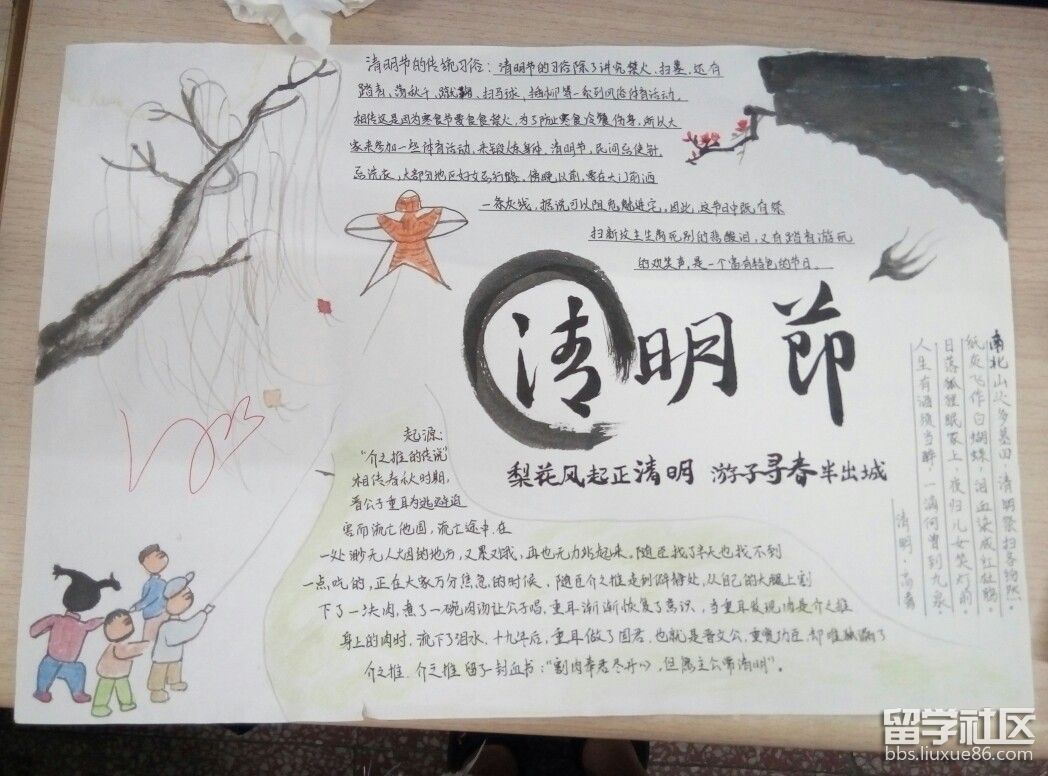 清明节的传统习俗：清明节的习俗除了讲究禁火、扫墓，还有
踏青、荡秋千、蹴鞠、打马球、插柳等一系列风俗体育活动。
相传这是因为寒食节要包食禁火，为了防止寒食冷餐伤身，所以大
家来参加一些体育活动，来锻炼身体。清明节，民间忌使针，
忌洗衣，大部分地区妇女忌行路。傍晚以前，要在大门前洒
一条灰线，据说可以阻鬼魅进宅。因此，这节日中既有祭
扫新坟生生离死别的悲酸泪，又有踏青游玩
的欢笑声，是一个富有特色的节日。
清明節
梨花风起正清明 游子寻春半出城
南北山头多墓田，清明祭扫各纷然。
纸灰飞作白蝴蝶，泪血染成红杜鹃。
日落狐狸眠冢上，夜归儿女笑灯前。
人生有酒须当醉，一滴何曾到九泉。
清明·高翥
起源：
“介之推的传说”
相传春秋时期，
晋公子重耳为逃避迫
害而流亡他国，流亡途中，在
一处渺无人烟的地方，又累又饿，再也无力站起来。随臣找了半天也找不到
一点吃的，正在大家万分焦急的时候，随臣介之推走到僻静处，从自己的大腿上割
下了一块肉，煮了一碗肉汤让公子喝，重耳渐渐恢复了意识，当重耳发现肉是介之推
身上的肉时，流下了泪水，十九年后，重耳做了国君，也就是晋文公，重赏功臣，却唯独漏了
介之推，介之推留了封血书：“割肉奉君尽丹心，但愿主公常清明”。
留学社区
bbs.liuxue86.com